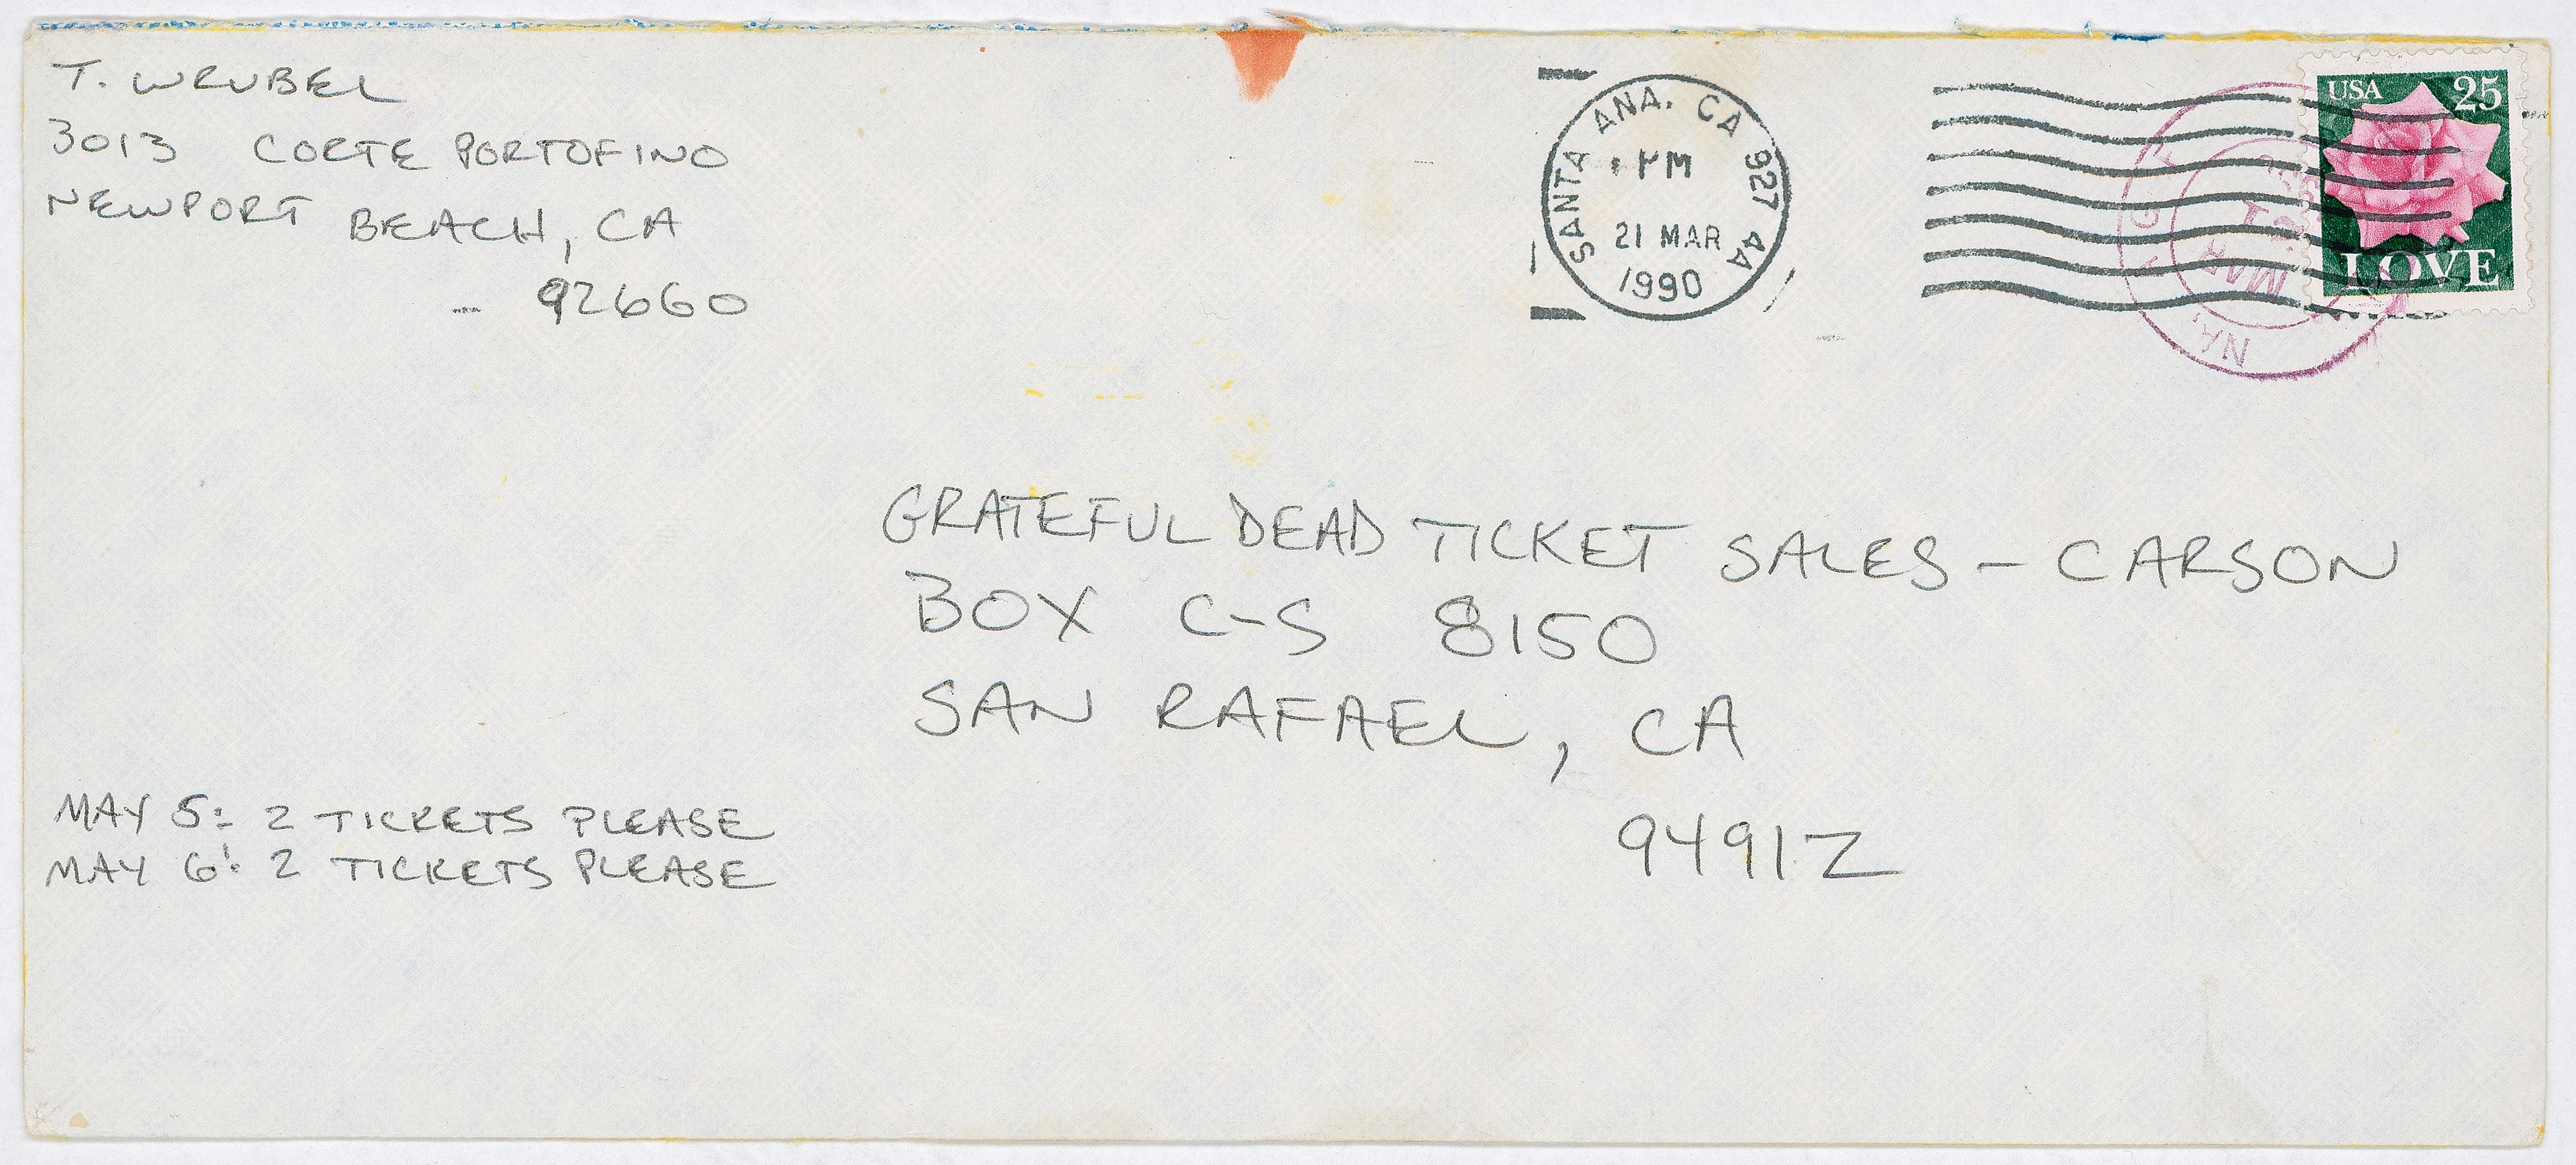 T. WRUBEL
3013 CORTE PORTOFINO
NEWPORT BEACH, CA
- 92660
SANTA ANA, CA 927 4A
PM
21 MAR
1990
USA 25
LOVE
MAR
GRATEFUL DEAD TICKET SALES - CARSON
BOX C-S 8150
SAN RAFAEL, CA
94912
MAY 5: 2 TICKETS PLEASE
MAY 6: 2 TICKETS PLEASE